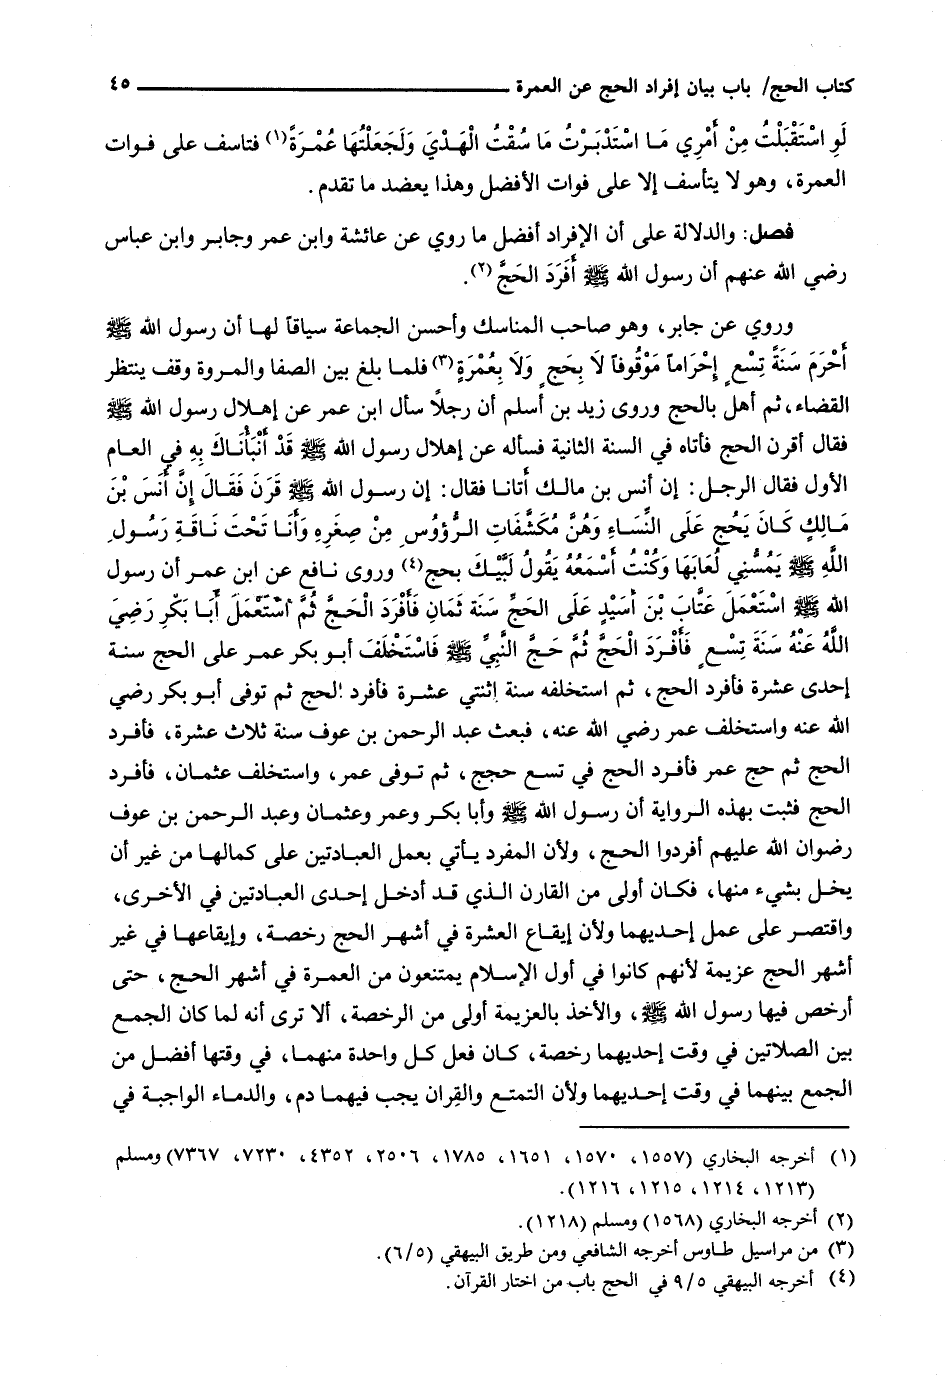 كتاب الحج/ باب بيان إفراد الحج عن العمرة ٤٥
لَوِ اسْتَقْبَلْتُ مِنْ أَمْرِي مَا اسْتَدْبَرْتُ مَا سُقْتُ الْهَدْيَ وَلَجَعَلْتُهَا عُمْرَةً(١) فتاسف على فوات
العمرة، وهو لا يتأسف إلا على فوات الأفضل وهذا يعضد ما تقدم.
فصل: والدلالة على أن الإفراد أفضل ما روي عن عائشة وابن عمر وجابر وابن عباس
رضي الله عنهم أن رسول الله ﷺ أَفَرَدَ الحَجَّ(٢).
وروي عن جابر، وهو صاحب المناسك وأحسن الجماعة سياقاً لها أن رسول الله ﷺ
أَحْرَمَ سَنَةً تِسْعٍ إِحْرَاماً مَوْقُوفاً لَا بِحَجٍ وَلَا بِعُمْرَةٍ(٣) فلما بلغ بين الصفا والمروة وقف ينتظر
القضاء، ثم أهل بالحج وروى زيد بن أسلم أن رجلاً سأل ابن عمر عن إهلال رسول الله ﷺ
فقال أقرن الحج فأتاه في السنة الثانية فسأله عن إهلال رسول الله ﷺ قَدْ أَنْبَأْنَاكَ بِهِ في العام
الأول فقال الرجل: إن أنس بن مالك أتانا فقال: إن رسول الله ﷺ قَرَنَ فَقَالَ إِنَّ أَنَسَ بْنَ
مَالِكٍ كَانَ يَحُجِ عَلَى النِّسَاءِ وَهُنَّ مُكَشَّفَاتِ الرُّؤُوسِ مِنْ صِغَرِهِ وَأَنَا تَحْتَ نَاقَةِ رَسُولِ
اللَّهِ ﷺ يَمُسُّنِي لُعَابَهَا وَكُنْتُ أَسْمَعُهُ يَقُولُ لَبَّيْكَ بحج(٤) وروى نافع عن ابن عمر أن رسول
الله ﷺ اسْتَعْمَلَ عَتَّابَ بْنَ أُسَيْدٍ عَلَى الحَجِّ سَنَةَ ثَمَانٍ فَأَفْرَدَ الْحَجَّ ثُمَّ اسْتَعْمَلَ أَبَا بَكْرٍ رَضِيَ
اللَّهُ عَنْهُ سَنَةَ تِسْعٍ فَأَفْرَدَ الْحَجَّ ثُمَّ حَجَّ النَّبِيُّ ﷺ فَاسْتَخْلَفَ أبو بكر عمر على الحج سنة
إحدى عشرة فأفرد الحج، ثم استخلفه سنة إثنتي عشرة فأفرد الحج ثم توفى أبو بكر رضي
الله عنه واستخلف عمر رضي الله عنه، فبعث عبد الرحمن بن عوف سنة ثلاث عشرة، فأفرد
الحج ثم حج عمر فأفرد الحج في تسع حجج، ثم توفى عمر، واستخلف عثمان، فأفرد
الحج فثبت بهذه الرواية أن رسول الله ﷺ وأبا بكر وعمر وعثمان وعبد الرحمن بن عوف
رضوان الله عليهم أفردوا الحج، ولأن المفرد يأتي بعمل العبادتين على كمالها من غير أن
يخل بشيء منها، فكان أولى من القارن الذي قد أدخل إحدى العبادتين في الأخرى،
واقتصر على عمل إحديهما ولأن إيقاع العشرة في أشهر الحج رخصة، وإيقاعها في غير
أشهر الحج عزيمة لأنهم كانوا في أول الإسلام يمتنعون من العمرة في أشهر الحج، حتى
أرخص فيها رسول الله ﷺ، والأخذ بالعزيمة أولى من الرخصة، ألا ترى أنه لما كان الجمع
بين الصلاتين في وقت إحديهما رخصة، كان فعل كل واحدة منهما، في وقتها أفضل من
الجمع بينهما في وقت إحديهما ولأن التمتع والقِران يجب فيهما دم، والدماء الواجبة في
(١) أخرجه البخاري (١٥٥٧، ١٥٧٠، ١٦٥١، ١٧٨٥، ٢٥٠٦، ٤٣٥٢، ٧٢٣٠، ٧٣٦٧) ومسلم
(١٢١٣، ١٢١٤، ١٢١٥، ١٢١٦).
(٢) أخرجه البخاري (١٥٦٨) ومسلم (١٢١٨).
(٣) من مراسيل طاوس أخرجه الشافعي ومن طريق البيهقي (٦/٥).
(٤) أخرجه البيهقي ٩/٥ في الحج باب من اختار القرآن.